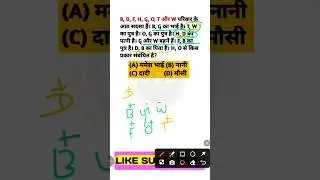 B, D, F, H, G, O, T और W परिवार के
आठ सदस्य हैं। B, G का भाई है। T, W
का पुत्र है। O, G का पुत्र है। H, D का
पत्नी है। G और W बहनें हैं। F, B का
पुत्र है। D, B का पिता है। H, O से किस
प्रकार संबंधित है?
(A) ममेरा भाई (B) नानी
(C) दादी (D) मौसी
D
B G W
F O T
B
LIKE SU